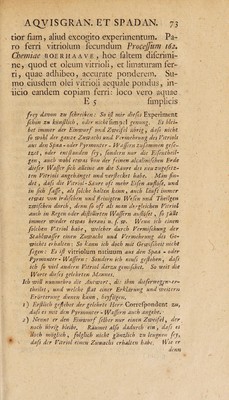 AQVISGRAN. ET SPADAN. 73
tior fiam, aliud excogito experimentum. Pa-
ro ferri vitriolum secundum Processum 162.
Chemiae BOERHAAVE, hoc saltem discrimi-
ne, quod et oleum vitrioli, et limaturam fer-
ri, quae adhibeo, accurate ponderem. Su-
mo eiusdem olei vitrioli aequale pondus, in-
iicio eandem copiam ferri: loco vero aquae
E 5 simplicis
frey davon zu schreiben: So ist mir dieses Experiment
schon zu künstlich, oder nicht simpel genung. Es blei-
bet immer der Einwurf und Zweifel übrig, dass nicht
so wohl der ganze Zuwachs und Vermehrung des Vitriols
aus den Spa- oder Pyrmonter-Wassern zusammen gese-
tzet, oder entstanden sey, sondern nur die Eisentheil-
gen, auch wohl etwas von der feinern alcalinischen Erde
dieser Wasser sich alleine an die Säure des ausgesetz-
ten Vitriols angehänget und verstecket habe. Man fin-
det, dass die Vitriol-Säure oft mehr Eisen auflöst, und
in sich fasst, als solche halten kann, auch läuft immer
etwas von boleschen und fettigten Wesen und Theilgen
zwischen durch, denn so oft als man dergleichen Vitriol
auch in Regen oder distillirten Wassern auflöset, so fällt
immer wieder etwas heraus u. s. w. Wenn ich einen
solchen Vitriol habe, welcher durch Vermischung der
Stahlwasser einen Zuwachs und Vermehrung des Ge-
wichts erhalten: So kann ich doch mit Gewissheit nicht
sagen: Es ist vitriolum natiuum aus den Spa- oder
Pyrmonter-Wassern: Sondern ich muss gestehen, dass
ich so viel andern Vitriol darzu gemischet. So weit die
Worte dieses gelehrten Mannes.
Ich will nunmehro die Antwort, die ihm dieserwegen er-
theilet, und welche statt einer Erklärung und weitern
Erörterung dienen kann, beyfügen.
1) Erstlich gestehet der gelehrte Herr Correspondent zu,
dass es mit den Pyrmonter-Wassern auch angehe.
2) Nennt er den Einwurf selber nur einen Zweifel, der
noch übrig bleibe. Räumet also dadurch ein, dass es
doch möglich, folglich nicht gänzlich zu leugnen sey,
dass der Vitriol einen Zuwachs erhalten habe. Was er
dann